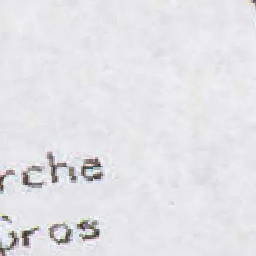 rche
pros